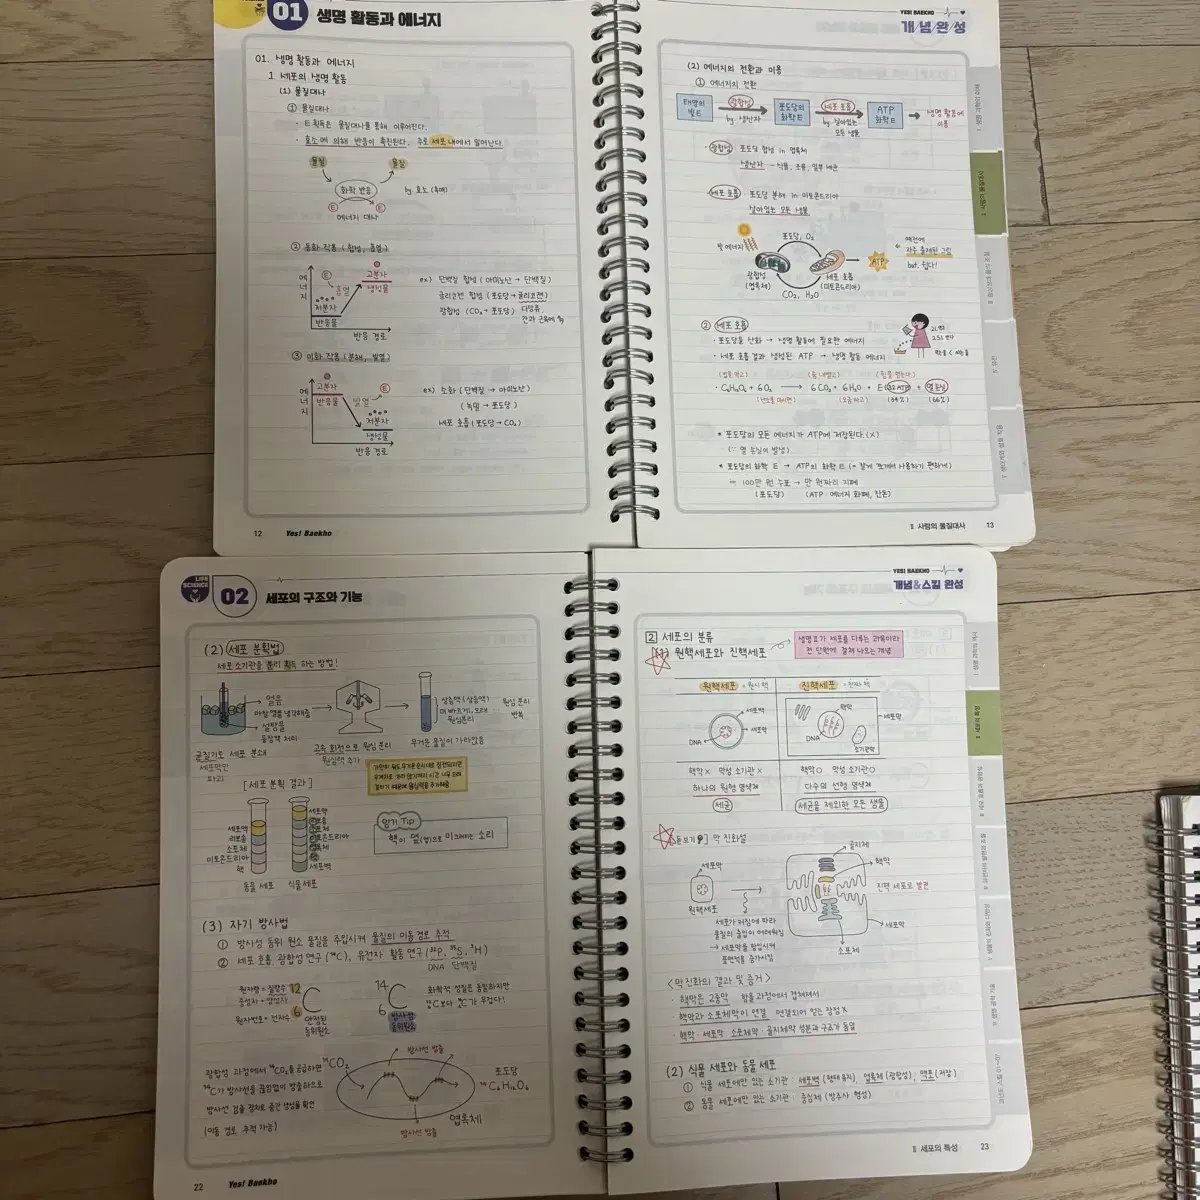 01 생명 활동과 에너지
01. 생명 활동과 에너지
1. 세포의 생명 활동
(1) 물질대사
① 물질대사
· E 획득은 물질대사를 통해 이루어진다.
· 효소에 의해 반응이 촉진된다. 주로 세포 내에서 일어난다.
물질
물질
화학 반응
by. 효소 (촉매)
E
E
에너지 대사
② 동화 작용 (합성, 흡열)
에너지
E
흡열
고분자
생성물
저분자
반응물
반응 경로
ex) 단백질 합성 (아미노산 → 단백질)
글리코젠 합성 (포도당 → 글리코젠)
광합성 (CO₂ → 포도당)
다당류
③ 이화 작용 (분해, 발열)
에너지
고분자
반응물
발열
E
저분자
생성물
반응 경로
ex) 소화 (단백질 → 아미노산)
(녹말 → 포도당)
세포 호흡 (포도당 → CO₂)
12 Yes! Baekho
YES! BAEKHO
개념완성
(2) 에너지의 전환과 이용
① 에너지의 전환
태양의 빛 E
광합성
by. 생산자
포도당의 화학 E
세포 호흡
by. 살아있는 모든 생물
ATP 화학 E
생명 활동에 이용
· 광합성 : 포도당 합성 in 엽록체
생산자 - 식물, 조류, 일부 세균
· 세포 호흡 : 포도당 분해 in 미토콘드리아
살아있는 모든 생물
빛 에너지
포도당, O₂
광합성
(엽록체)
세포 호흡
(미토콘드리아)
CO₂, H₂O
ATP
예전에
자주 출제된 그림
but. 쉽다!
② 세포 호흡
· 포도당을 산화 → 생명 활동에 필요한 에너지
· 세포 호흡 결과 생성된 ATP → 생명 활동 에너지
(숨 내쉬고)
C₆H₁₂O₆ + 6O₂ → 6CO₂ + 6H₂O + E (32 ATP) + 열 손실
(34%) (66%)
* 포도당의 모든 에너지가 ATP에 저장된다. (X)
(∵ 열 손실이 발생)
* 포도당의 화학 E → ATP의 화학 E (= 잘게 쪼개서 사용하기 편하게)
= 100만 원 수표 → 만 원짜리 지폐
(포도당) (ATP : 에너지 화폐, 잔돈)
Ⅱ 사람의 물질대사 13
Ⅱ 사람의 물질대사
LIFE SCIENCE
02 세포의 구조와 기능
(2) 세포 분획법
세포 소기관을 분리 획득 하는 방법!
얼음
마찰열을 냉각해줌
설탕물
등장액 처리
균질기로 세포 분쇄
세포막만 파괴
고속 회전으로 원심 분리
원심력 추가
상층액 (상등액)
더 빠르게, 오래
원심분리
무거운 물질이 가라앉음
원심 분리
반복
[세포 분획 결과]
세포액
리보솜
소포체
미토콘드리아
핵
동물 세포
세포액
리보솜
소포체
미토콘드리아
세포벽
식물 세포
암기 Tip
(3) 자기 방사법
① 방사성 동위 원소 물질을 주입시켜 물질의 이동 경로 추적
② 세포 호흡, 광합성 연구 (¹⁴C), 유전자 활동 연구 (³²P, ³⁵S, ³H)
DNA 단백질
원자량 = 질량수
중성자 + 양성자
원자번호 = 전자수
12
6 C
안정된
동위원소
14
6 C
방사성
동위원소
화학적 성질은 동일하지만
¹²C 보다 ¹⁴C가 무겁다!
광합성 과정에서 ¹⁴CO₂를 공급하면
¹⁴C가 방사선을 끊임없이 방출하므로
방사선 검출 장치로 중간 생성물 확인
(이동 경로 추적 가능)
¹⁴CO₂
방사선 방출
포도당
¹⁴C₆H₁₂O₆
엽록체
방사선 방출
22 Yes! Baekho
YES! BAEKHO
개념&스킬 완성
2 세포의 분류
(1) 원핵세포와 진핵세포
생명과학 세포를 다루는 과목이라
전 단원에 걸쳐 나오는 개념
원핵세포 = 원시 핵
진핵세포 = 진짜 핵
세포벽
세포막
DNA
핵막
세포막
DNA
소기관막
핵막 X 막성 소기관 X
핵막 O 막성 소기관 O
하나의 원형 염색체
다수의 선형 염색체
세균
세균을 제외한 모든 생물
[돋보기] 막 진화설
세포막
원핵세포
세포가 커짐에 따라
물질의 출입이 어려워짐
→ 세포막을 함입시켜
표면적을 증가시킴
골지체
핵막
진핵 세포로 발견
세포막
소포체
<막 진화의 결과 및 증거>
· 핵막은 2중막 : 함몰 과정에서 겹쳐져서
· 핵막과 소포체막이 연결
· 핵막 · 세포막 · 소포체막 · 골지체막 성분과 구조가 동일
(2) 식물 세포와 동물 세포
① 식물 세포에만 있는 소기관 : 세포벽 (형태 유지), 엽록체 (광합성), 액포 (저장)
② 동물 세포에만 있는 소기관 : 중심체 (방추사 형성)
Ⅱ 세포의 특성 23
Ⅱ 세포의 특성